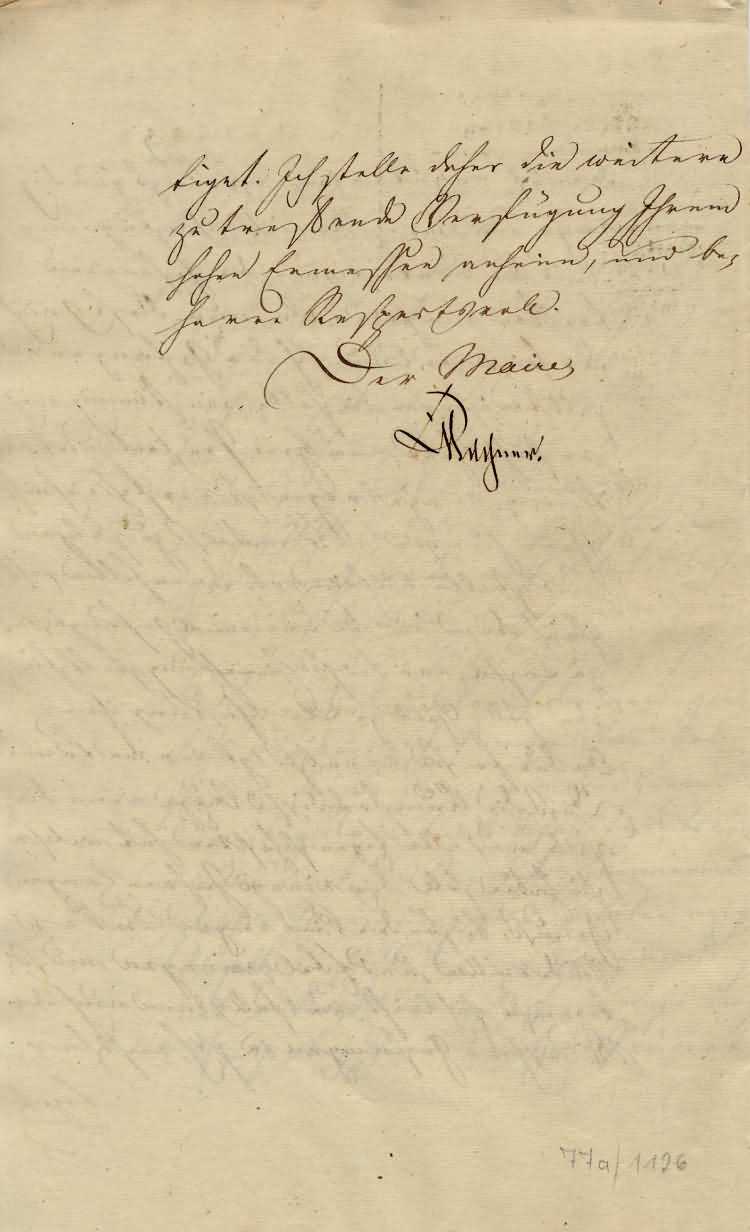 tiget. Ich stelle daher die weitere
zu treffende Verfügung Ihrem
hohen Ermessen anheim, und be-
harre Respectsvoll.
Der Maire
77a/1126